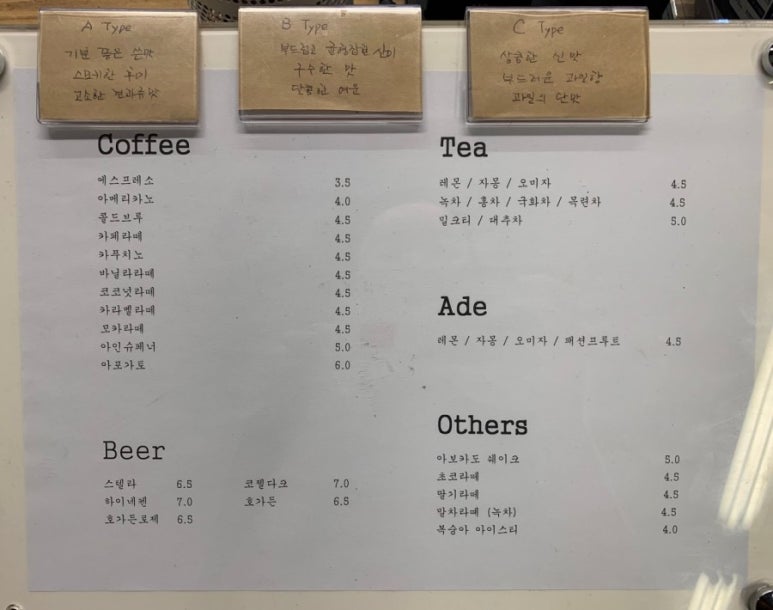 A Type
기분 좋은 쓴맛
스모키한 향미
고소한 견과류맛
B Type
부드럽고 균형잡힌 신미
구수한 맛
달콤한 여운
C Type
상큼한 신맛
부드러운 과일향
과일의 단맛
Coffee
에스프레소 3.5
아메리카노 4.0
콜드브루 4.5
카페라떼 4.5
카푸치노 4.5
바닐라라떼 4.5
코코넛라떼 4.5
카라멜라떼 4.5
모카라떼 4.5
아인슈페너 5.0
아포가토 6.0
Tea
레몬 / 자몽 / 오미자 4.5
녹차 / 홍차 / 국화차 / 목련차 4.5
밀크티 / 대추차 5.0
Ade
레몬 / 자몽 / 오미자 / 패션프루트 4.5
Beer
스텔라 6.5 코젤다크 7.0
하이네켄 7.0 호가든 6.5
호가든로제 6.5
Others
아보카도 쉐이크 5.0
초코라떼 4.5
딸기라떼 4.5
말차라떼 (녹차) 4.5
복숭아 아이스티 4.0